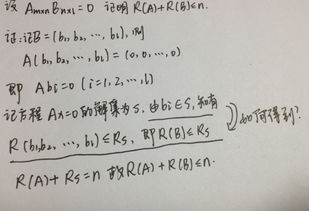 设 Am×n Bn×l=0 证明 R(A)+R(B)≤n.
证:记B=(b₁,b₂,…,bl),则
A(b₁,b₂,…,bl)=(0,0,…,0)
即 Abi=0 (i=1,2,…,l)
记方程 Ax=0的解集为S,由bi∈S,知有
R(b₁,b₂,…,bl)≤Rs,即R(B)≤Rs
如何得到?
R(A)+Rs=n 故R(A)+R(B)≤n.